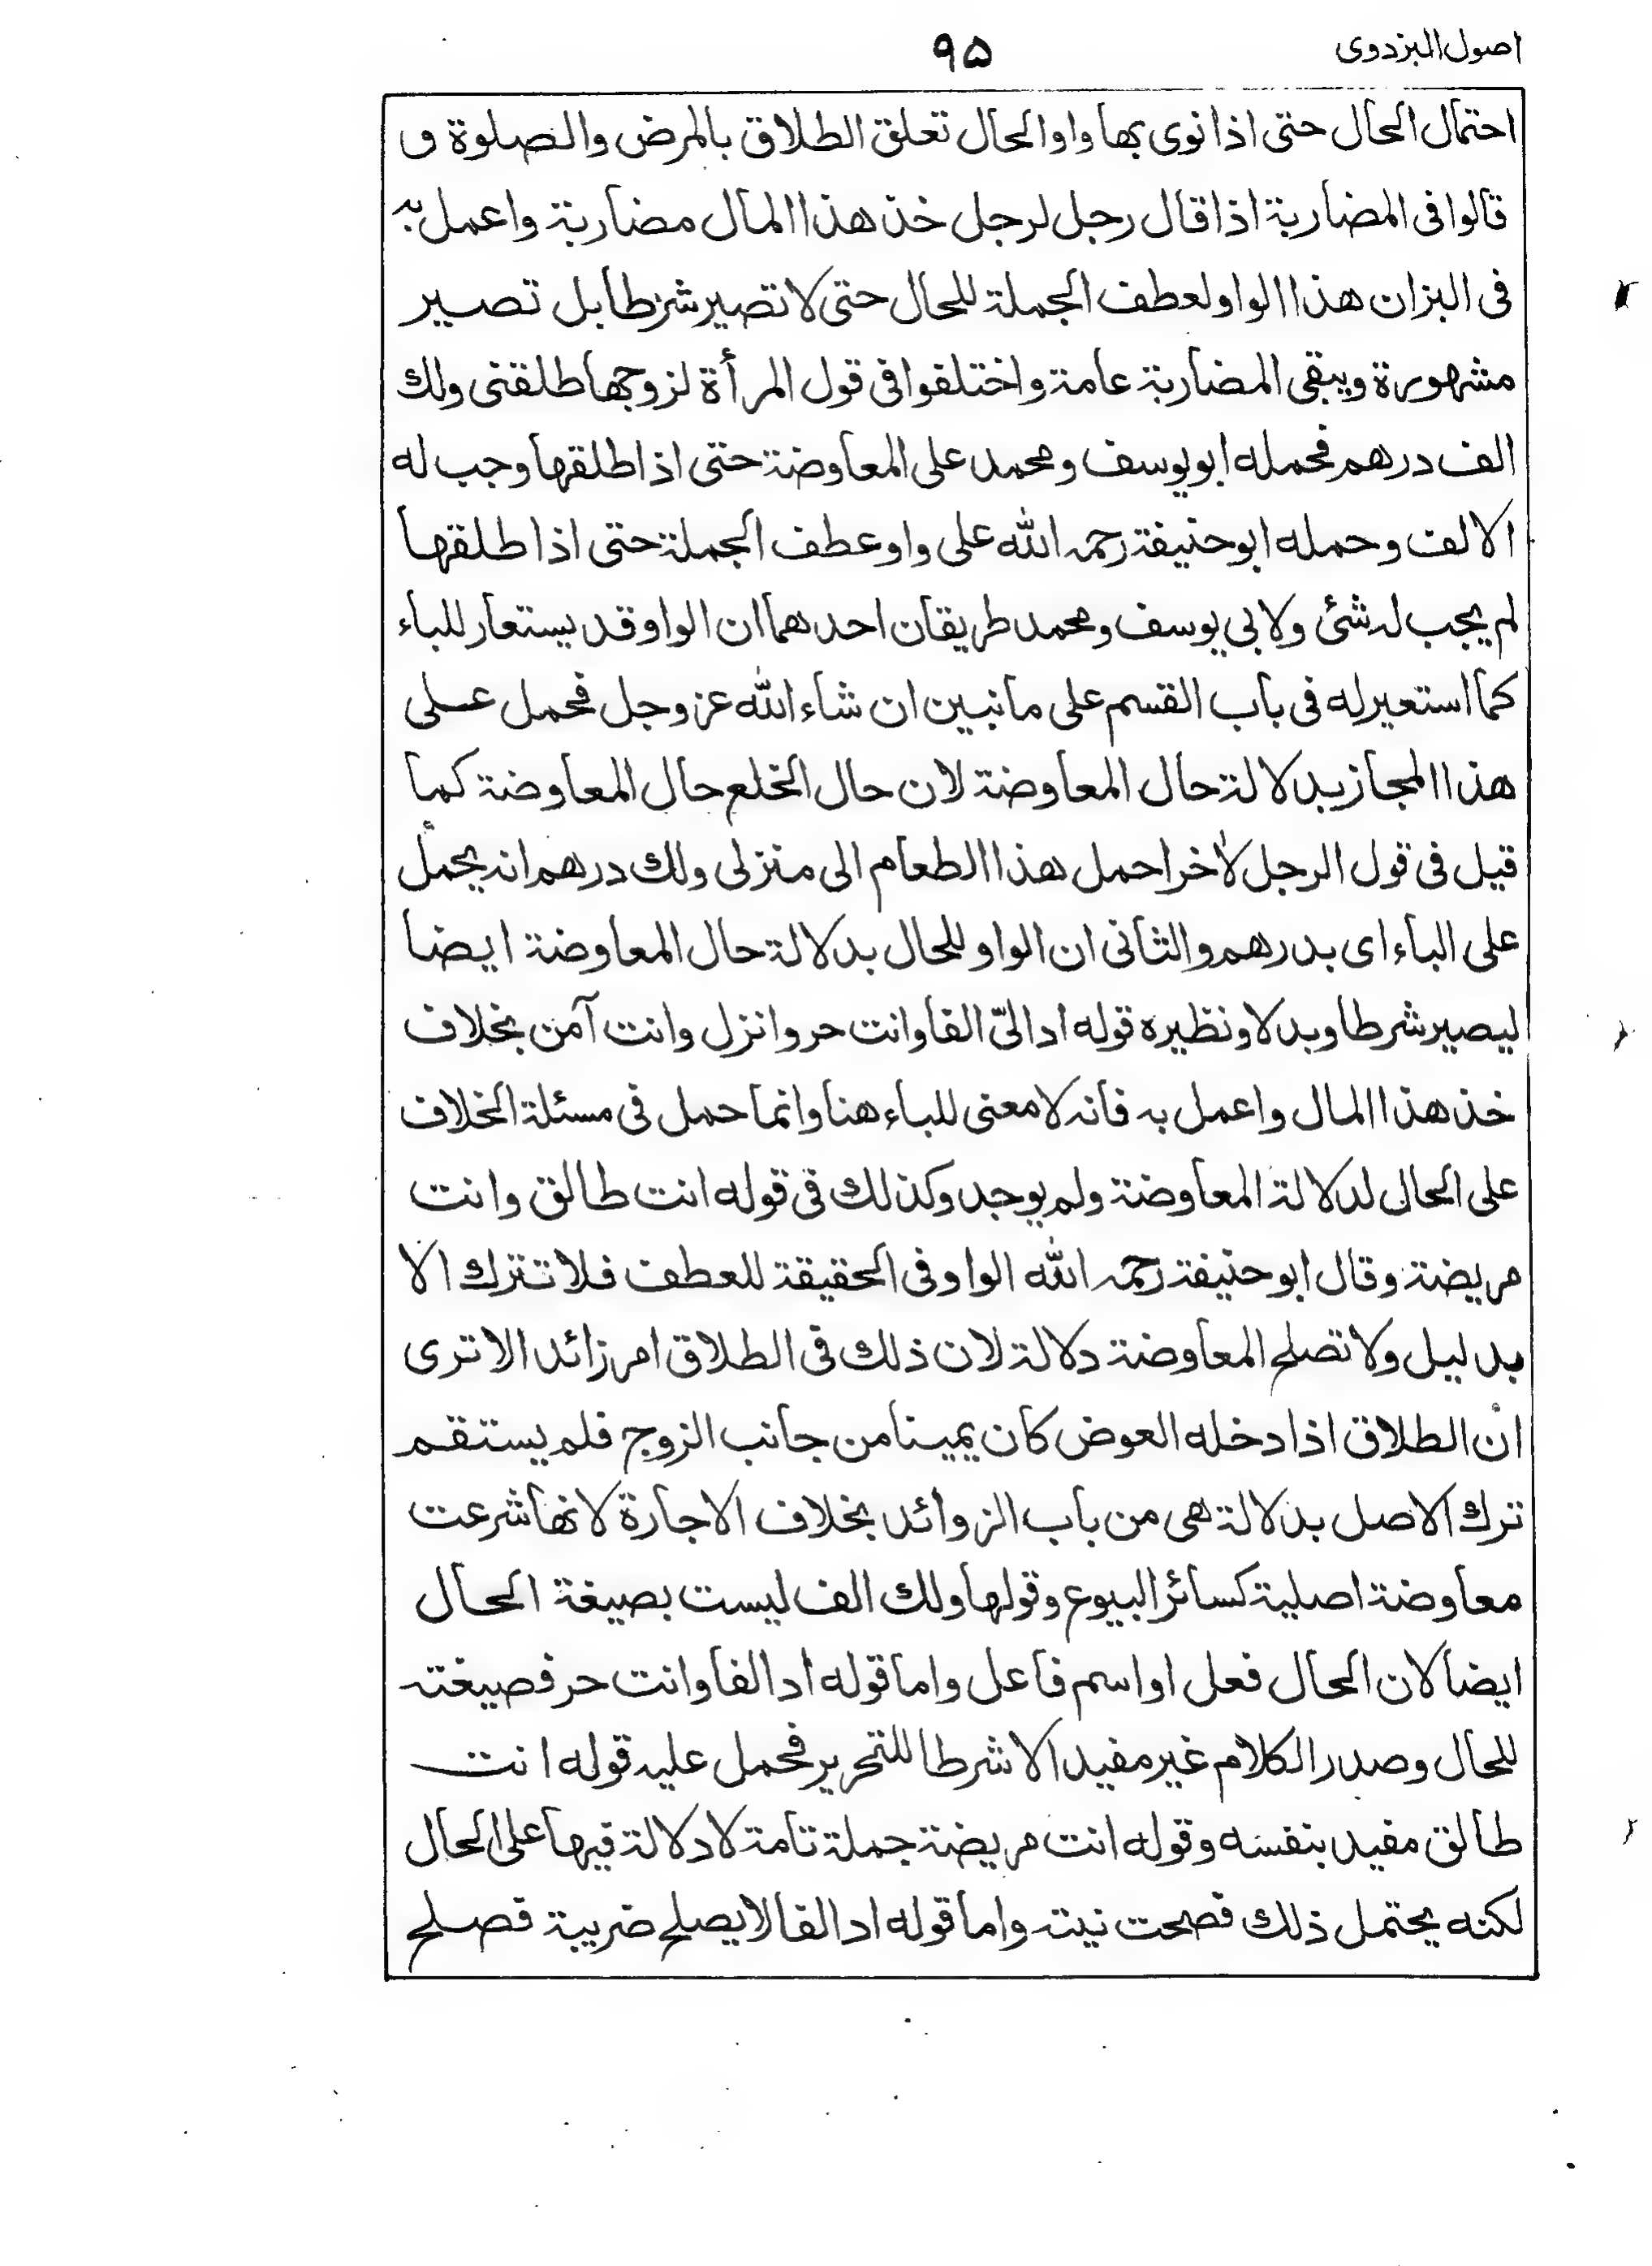 اصول البزدوى ٩۵
احتمال الحال حتى اذا نوى بها واو الحال تعلق الطلاق بالمرض والصلوة و
قالوا فى المضاربة اذا قال رجل لرجل خذ هذا المال مضاربة واعمل به
فى البزان هذا الواو لعطف الجملة للحال حتى لا تصير شرطا بل تصير
مشهورة ويبقى المضاربة عامة واختلفوا فى قول المرأة لزوجها طلقنى ولك
الف درهم فحمله ابو يوسف ومحمد على المعاوضة حتى اذا طلقها وجب له
الالف وحمله ابو حنيفة رحمه الله على واو عطف الجملة حتى اذا طلقها
لم يجب له شئ ولابى يوسف ومحمد طريقان احدهما ان الواو قد يستعار للباء
كما استعير له فى باب القسم على ما نبين ان شاء الله عز وجل فحمل على
هذا المجاز بدلالة حال المعاوضة لان حال الخلع حال المعاوضة كما
قيل فى قول الرجل لاخر احمل هذا الطعام الى منزلى ولك درهم انه يحمل
على الباء اى بدرهم والثانى ان الواو للحال بدلالة حال المعاوضة ايضا
ليصير شرطا وبدلا ونظيره قوله اد الىّ الفا وانت حر وانزل وانت آمن بخلاف
خذ هذا المال واعمل به فانه لا معنى للباء هنا وانما حمل فى مسئلة الخلاف
على الحال لدلالة المعاوضة ولم يوجد وكذلك فى قوله انت طالق وانت
مريضة وقال ابو حنيفة رحمه الله الواو فى الحقيقة للعطف فلا تترك الا
بدليل ولا تصلح المعاوضة دلالة لان ذلك فى الطلاق امر زائد الا ترى
ان الطلاق اذا دخله العوض كان يمينا من جانب الزوج فلم يستقم
ترك الاصل بدلالة هى من باب الزوائد بخلاف الاجارة لانها شرعت
معاوضة اصلية كسائر البيوع وقولها ولك الف ليست بصيغة الحال
ايضا لان الحال فعل او اسم فاعل واما قوله اد الفا وانت حر فصيغته
للحال وصدر الكلام غير مفيد الا شرطا للتحرير فحمل عليه قوله انت
طالق مفيد بنفسه وقوله انت مريضة جملة تامة لا دلالة فيها على الحال
لكنه يحتمل ذلك فصحت نيته واما قوله اد الفا لا يصلح ضريبة فصلح